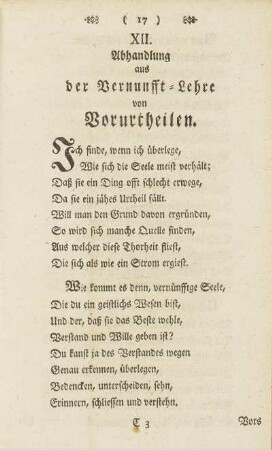 ( 17 )
XII.
Abhandlung
aus
der Vernunfft-Lehre
von
Vorurtheilen.
Ich finde, wenn ich überlege,
Wie sich die Seele meist verhält;
Daß sie ein Ding offt schlecht erwege,
Da sie ein jähes Urtheil fällt.
Will man den Grund davon ergründen,
So wird sich manche Quelle finden,
Aus welcher diese Thorheit fliest,
Die sich als wie ein Strom ergiest.
Wie kommt es denn, vernünfftge Seele,
Die du ein geistlichs Wesen bist,
Und der, daß sie das Beste wehle,
Verstand und Wille geben ist?
Du kanst ja des Verstandes wegen
Genau erkennen, überlegen,
Bedencken, unterscheiden, sehn,
Erinnern, schliessen und verstehn.
C 3 Vors